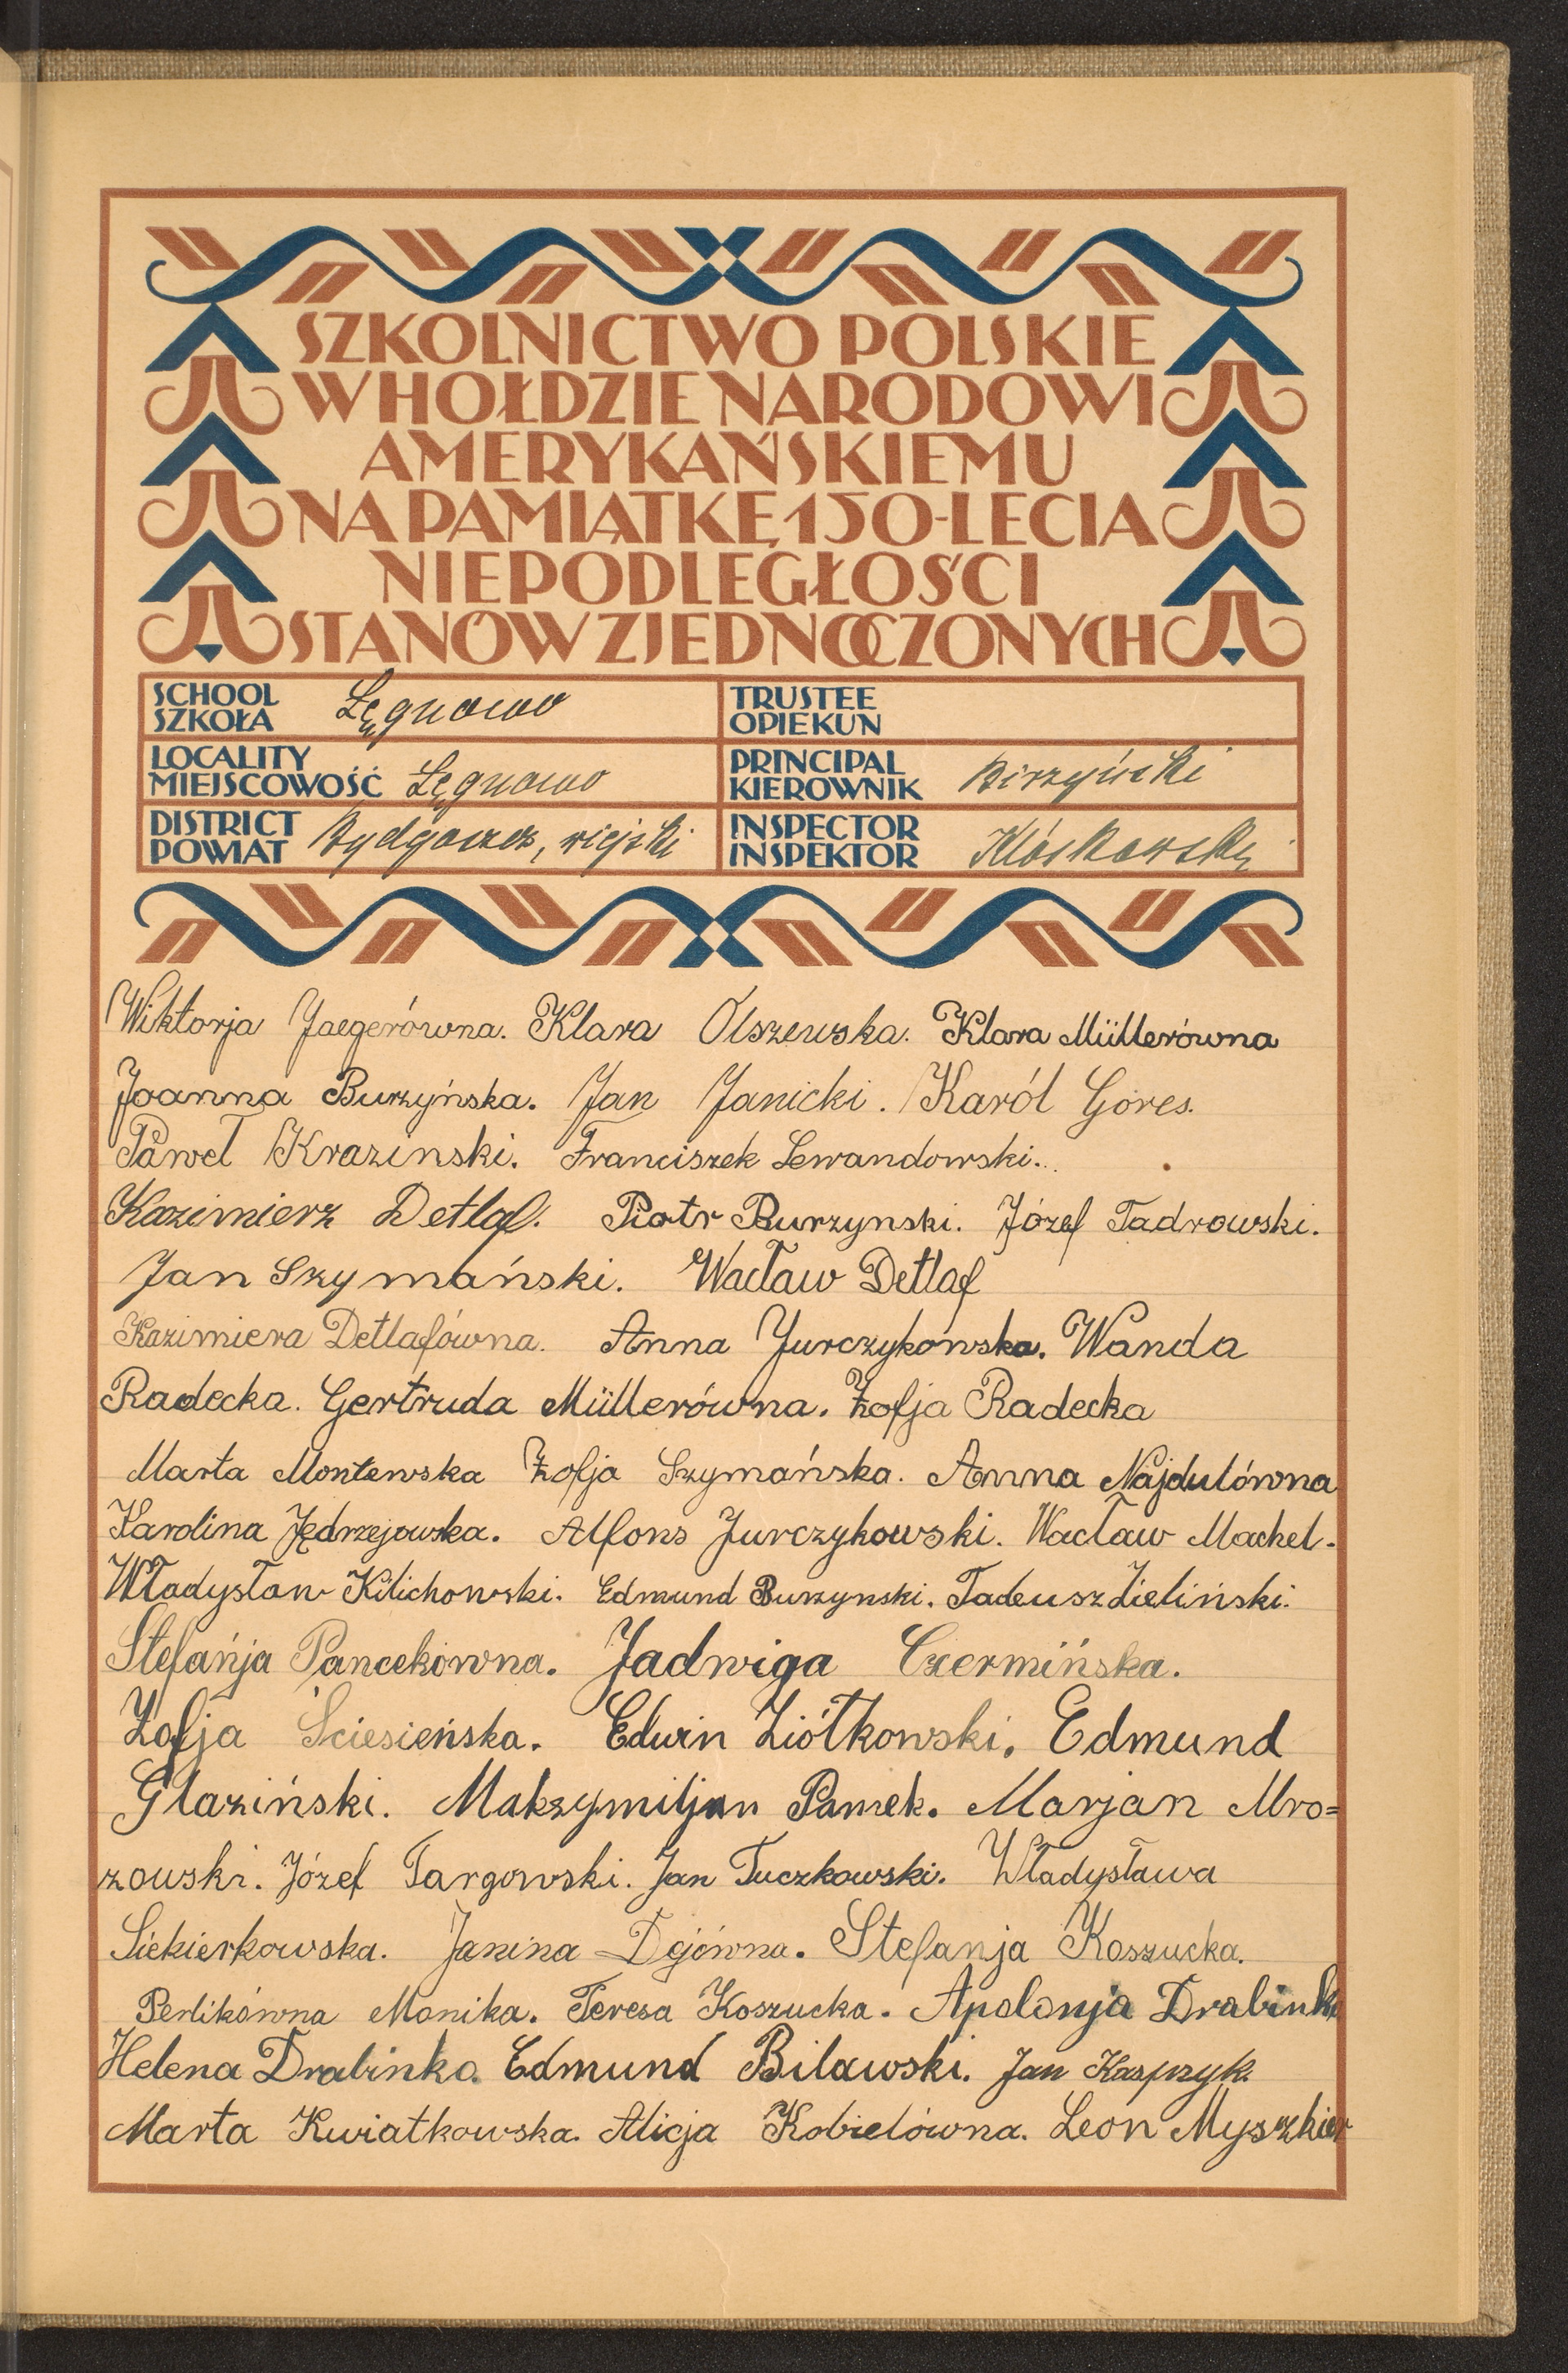 SZKOLNICTWO POLSKIE
W HOŁDZIE NARODOWI
AMERYKAŃSKIEMU
NA PAMIĄTKĘ 150-LECIA
NIEPODLEGŁOŚCI
STANÓW ZJEDNOCZONYCH
SCHOOL SZKOŁA Łęgnowo
TRUSTEE OPIEKUN
LOCALITY MIEJSCOWOŚĆ Łęgnowo
PRINCIPAL KIEROWNIK Birzyński
DISTRICT POWIAT Bydgoszcz, wiejski
INSPECTOR INSPEKTOR Kłóskowski
Wiktorja Jaegerówna. Klara Olszewska. Klara Müllerówna
Joanna Burzyńska. Jan Janicki. Karól Göres.
Paweł Krazinski. Franciszek Lewandowski.
Kazimierz Detlaf. Piotr Burzynski. Józef Tadrowski.
Jan Szymański. Wacław Detlaf
Kazimiera Detlafówna. Anna Jurczykowska. Wanda
Radecka. Gertruda Müllerówna. Zofja Radecka
Marta Montewska Zofja Szymańska. Anna Najdulówna
Karolina Jędrzejowska. Alfons Jurczykowski. Wacław Machel.
Władysław Kilichowski. Edmund Burzynski. Tadeusz Zieliński.
Stefańja Pancekówna. Jadwiga Czermińska.
Zofja Ściesieńska. Edwin Ziółkowski. Edmund
Glaziński. Maksymiljan Pamek. Marjan Mro=
zowski. Józef Targowski. Jan Tuczkowski. Władysława
Siekierkowska. Janina Dejówna. Stefanja Koszucka.
Perlikówna Monika. Teresa Koszucka. Apolonja Drabinka
Helena Drabinka. Edmund Bilawski. Jan Kasprzyk.
Marta Kwiatkowska. Alicja Kobielówna. Leon Myszkier